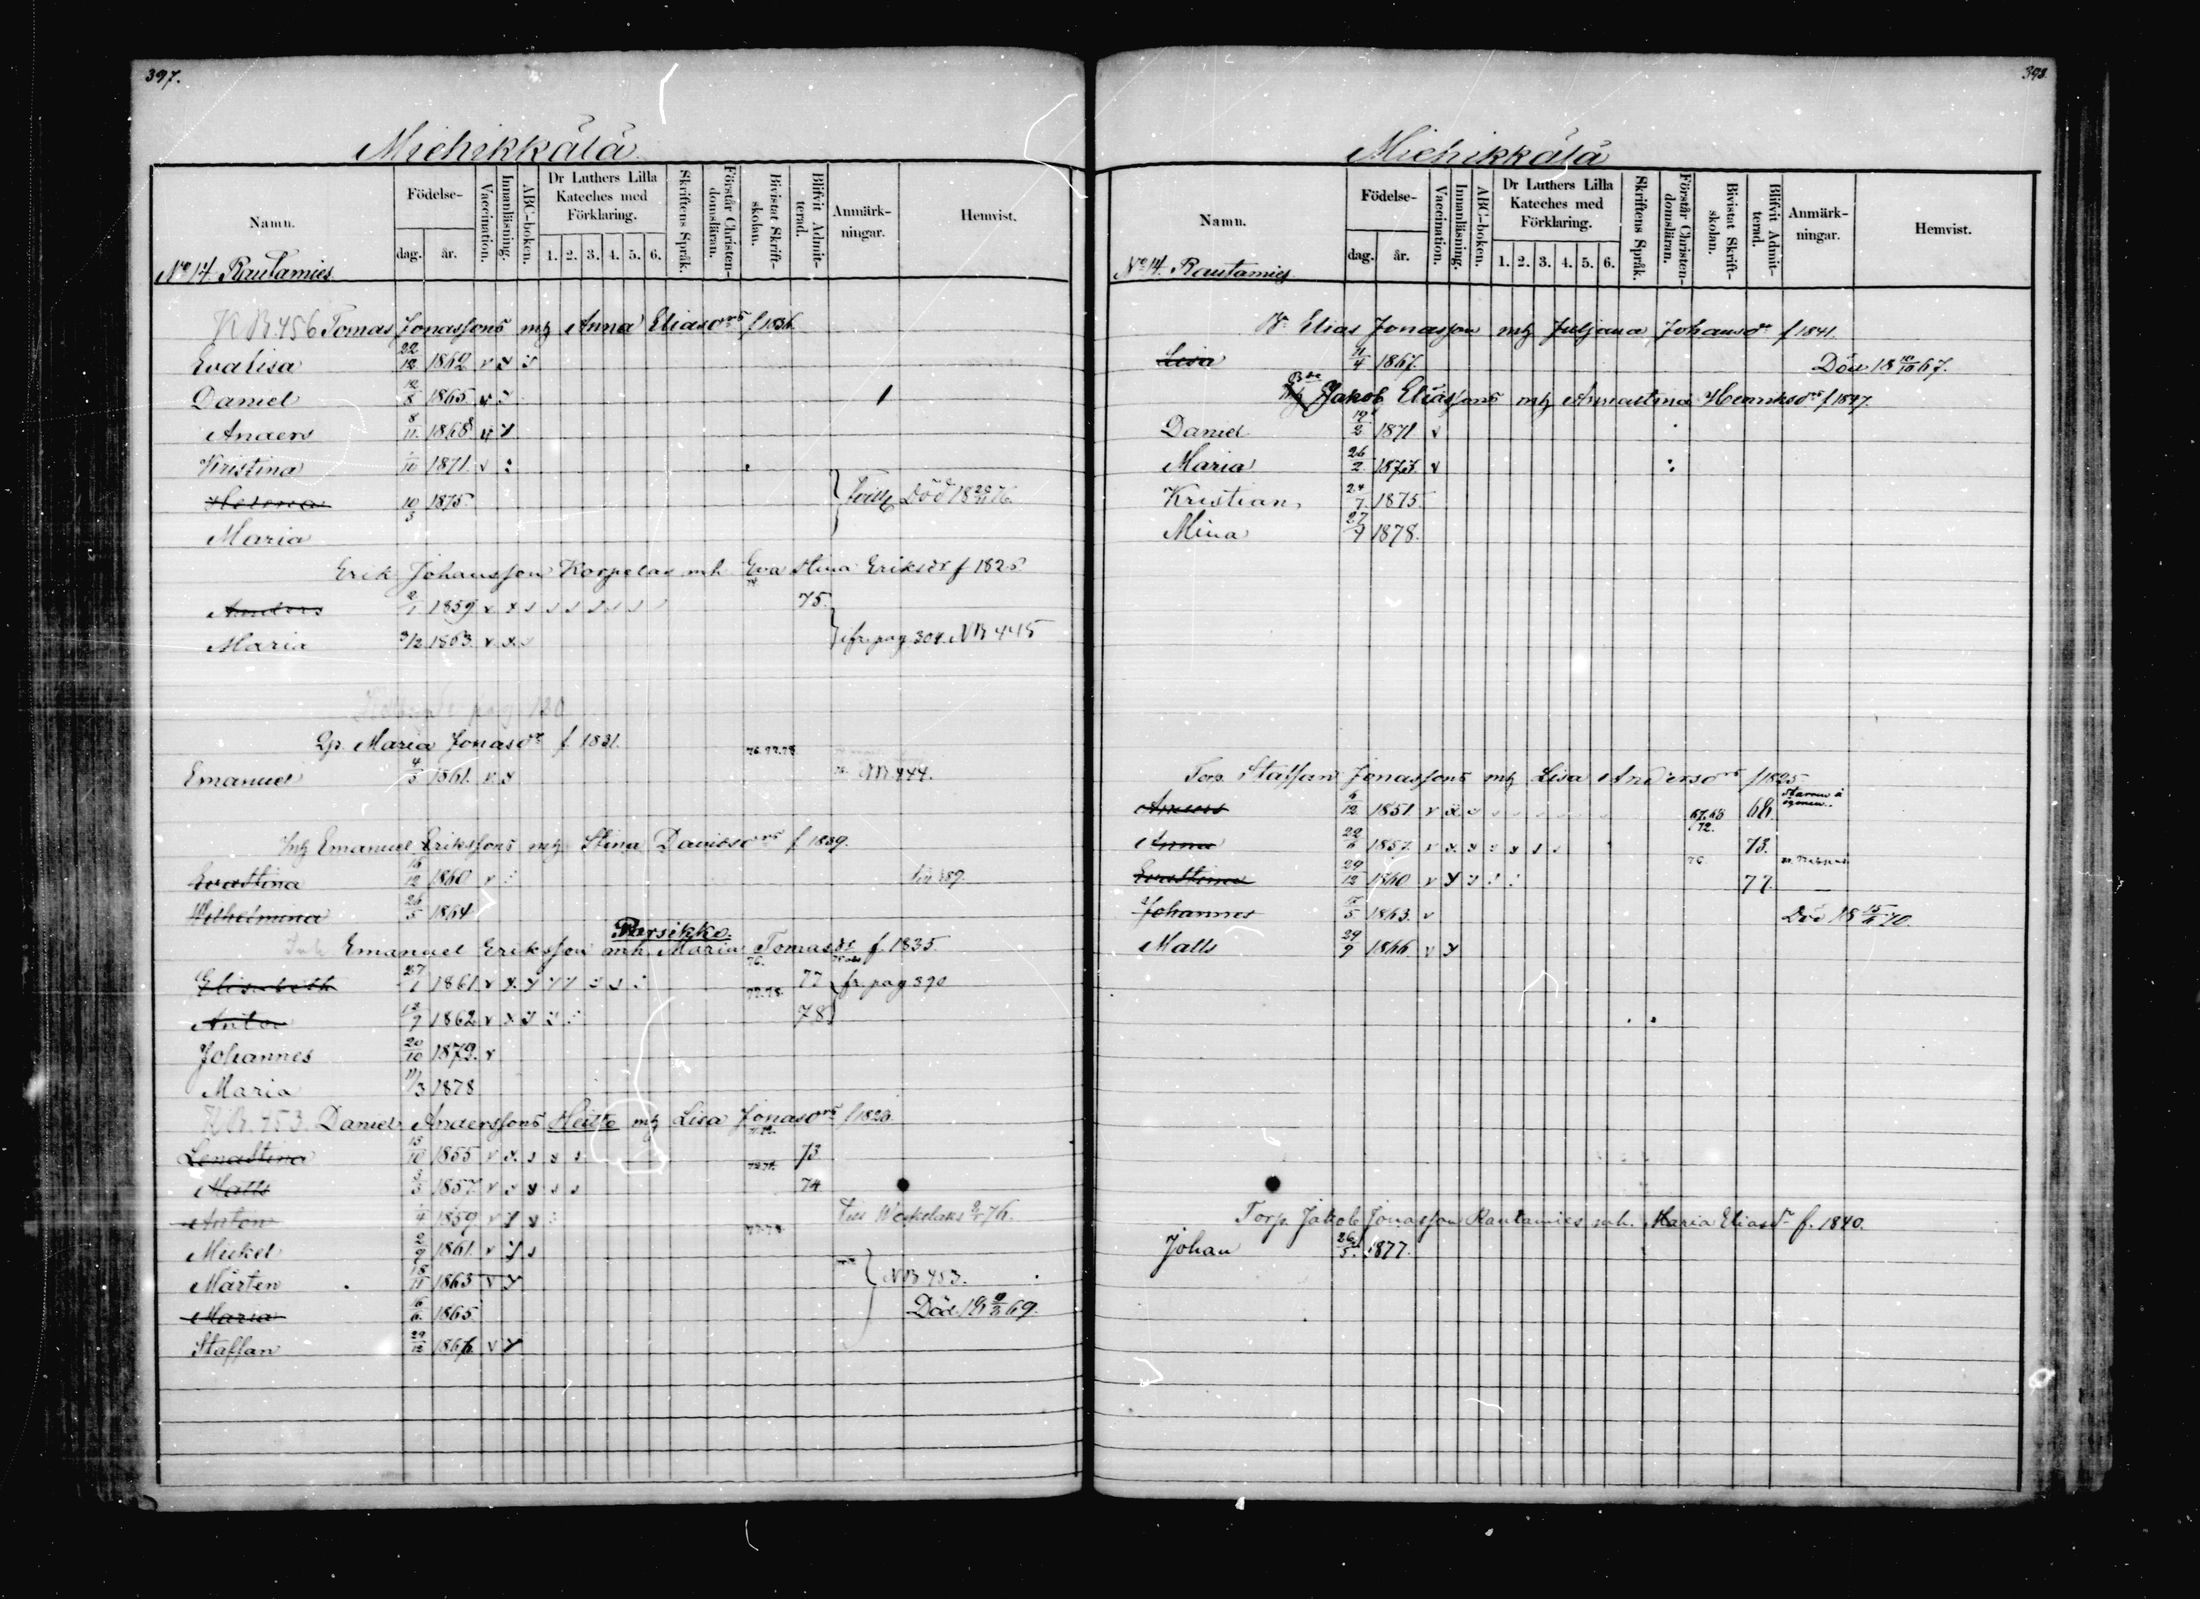 397.
Miehikkälä
Namn.
Födelse-
dag.
år.
Vaccination.
Innanläsning.
ABC-boken.
Dr Luthers Lilla
Kateches med
Förklaring.
1. 2. 3. 4. 5. 6.
Skriftens Språk.
Förstår Christen-
domsläran.
Bivistat Skrift-
skolan.
Blifvit Admit-
terad.
Anmärk-
ningar.
Hemvist.
No 14 Rautamies
KB.456 Tomas Jonassons mh Anna Eliasdrs f 1836
Evalisa 22/12 1862 v
Daniel 12/8 1865
Anders 8/11 1868
Kristina /10 1871 v
Helena 10/3 1875 Död 18 76
Maria
Erik Johansson Korpelas mh Eva Stina Eriksdr f 1825
Anders 2/1 1859 v x 75.
Maria 3/2 1863 v x fr. pag 304. NB 445
pag 120
Maria Jonasdr f 1831.
76.77.78
Emanuel 4/5 1861 v NB 444.
Inh Emanuel Erikssons mh Stina Davidsdrs f 1839.
Evastina 16/12 1860 v
Wilhelmina 26/5 1864
Parsikko.
Emanuel Eriksson mh. Maria Tomasdr f. 1835
76.
Elisabeth 27/1 1861 v x 77 fr. pag 390
77.78.
Anita 12/9 1862 v x 78
Johannes 20/10 1872. v
Maria 11/3 1878
KB. 453. Daniel Anderssons Heitto mh Lisa Jonasdrs f 1823
Lenastina 15/10 1855 v x 73
Matts 3/3 1857 v 74
Anton /4 1859 v Till Weckelaks 76.
77.78
Mickel 2/9 1861 v
Mårten 18/11 1863 v NB 453.
Maria 16/6 1865 Död 18 69.
Staffan 29/12 1866 v
398.
Miehikkälä
Namn.
Födelse-
dag.
år.
Vaccination.
Innanläsning.
ABC-boken.
Dr Luthers Lilla
Kateches med
Förklaring.
1. 2. 3. 4. 5. 6.
Skriftens Språk.
Förstår Christen-
domsläran.
Bivistat Skrift-
skolan.
Blifvit Admit-
terad.
Anmärk-
ningar.
Hemvist.
No 14. Rautamies
Elias Jonasson mh Juljana Johansdr f 1841.
Lisa 11/4 1867. Död 18 10/10 67.
Jakob Eliassons mh Annastina Henriksdrs f 1847.
Daniel 19/2 1871 v
Maria 26/2 1873. v
Kristian 24/7 1875
Mina 27/7 1878.
Torp. Staffan Jonassons mh Lisa Andersdrs f 1825
Anders 6/12 1851 v x 67.68 68
72.
Anna 22/6 1857 v x 73.
76.
Evastina 29/12 1860 v 77.
Johannes /5 1863. v Död 18 15/6 70.
Matts 29/9 1866 v
Torp. Jakob Jonasson Rautamies mh. Maria Eliasdr f. 1840.
Johan 26/5 1877.